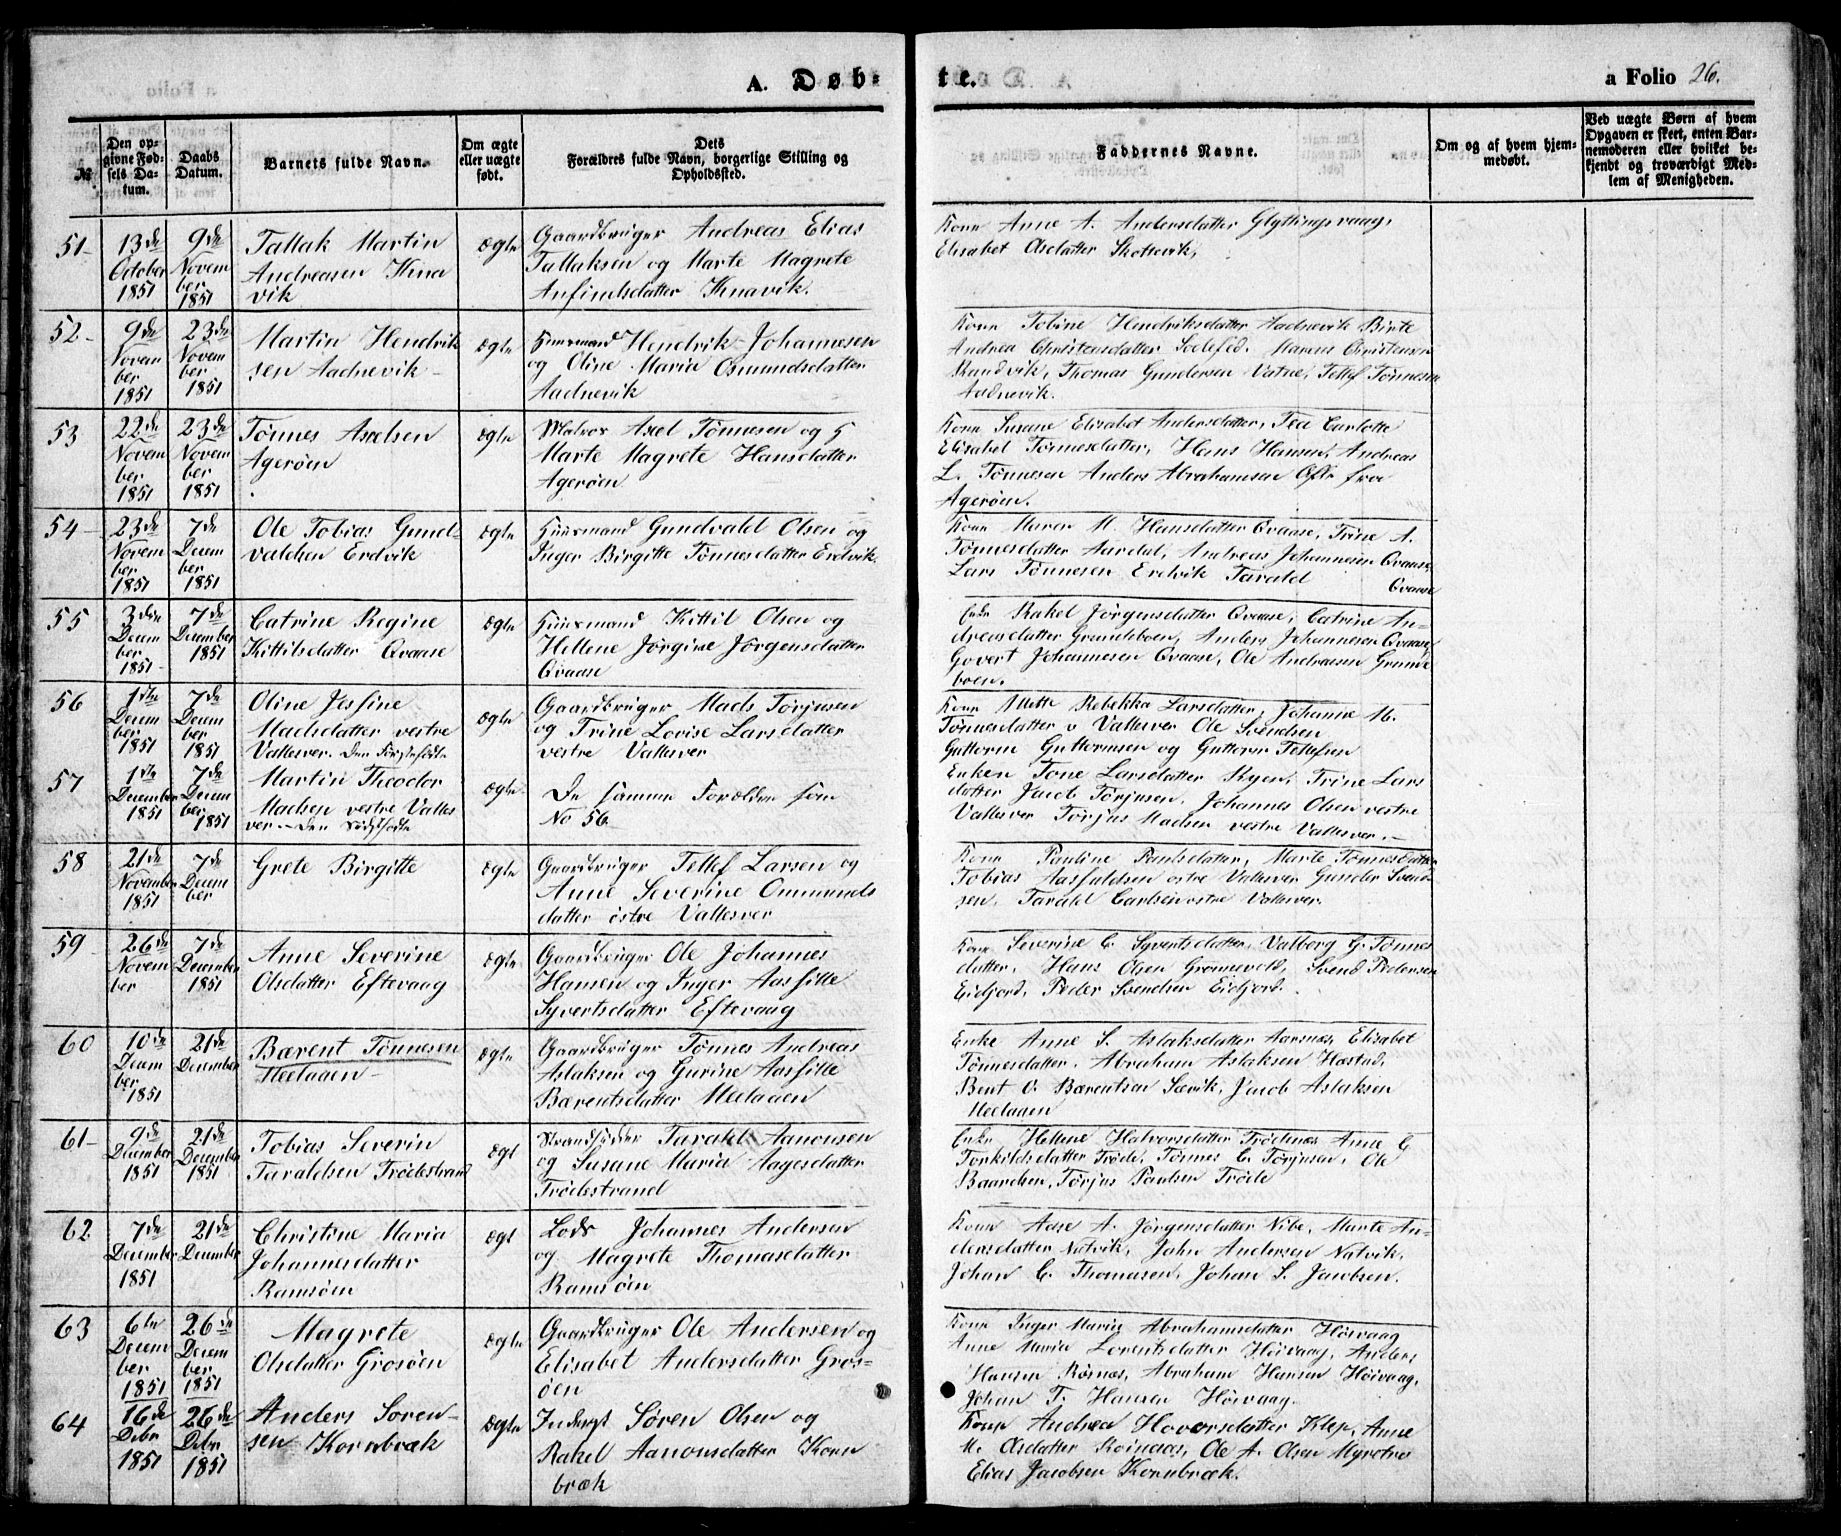 A. Døb-
te.
a Folio 26.
№
Den op-
givne Fød-
sels Da-
tum.
Daabs
Datum.
Barnets fulde Navn.
Om ægte
eller uægte
født.
Dets
Forældres fulde Navn, borgerlige Stilling og
Opholdssted.
Faddernes Navne.
Om og af hvem hjem-
medøbt.
Ved uægte Børn af hvem
Opgaven er skeet, enten Bar-
nemoderen eller hvilket be-
kjendt og troværdigt Med-
lem af Menigheden.
51-
13de
October
1851
9de
Novem
ber
1851
Tallak Martin
Andreasen Kna
vik
ægte
Gaardbruger Andreas Elias
Tallaksen og Marte Magrete
Anfindsdatter Knavik.
Kone Anne A. Andersdatter Glyttingsvaag,
Elisabet Olsdatter Skottevik,
52-
9de
Novem
ber
1851
23de
Novem
ber
1851
Martin Hendrik
sen Aadnevik-
ægte
Huusmand Hendrik Johannesen
og Oline Maria Osmundsdatter
Aadnevik
Kone Tobine Hendriksdatter Aadnevik Birte
Andrea Christensdatter Marcus Christensen
Randvik, Thomas Gundersen Vatne, Tellef Tønnesen
Aadnevik.
53
22de
Novem
ber
1851
23de
Novem
ber
1851
Tønnes Axelsen
Agerøen
ægte
Matros Axel Tønnesen og
Marte Magrete Hansdatter
Agerøen
Kone Susane Elisabet Andersdatter, Tea Carlotte
Elisabet Tønnesdatter, Hans Hansen, Andreas
L. Tønnesen Anders Abrahamsen fra
Agerøen.
54-
23de
Novem
ber
1851
7de
Decem
ber
1851
Ole Tobias Gund-
valdsen Erdvik
ægte
Huusmand Gundvald Olsen og
Inger Birgitte Tønnesdatter Erdvik.
Kone Maren M. Hansdatter Qvaase, Trine A.
Tønnesdatter Aardal, Andreas Johannesen Qvaase,
Lars Tønnesen Erdvik Tarald Qvaase
55
3die
Decem
ber
1851-
7de
December
1851
Catrine Regine
Kittilsdatter Qvaase
ægte
Huusmand Kittil Olsen og
Hellene Jørgine Jørgensdatter
Qvaase
Enke Rakel Jørgensdatter Qvaase, Catrine An-
dreasdatter Grundeboen, Anders Johannesen Qvaase,
Govert Johannesen Qvaase, Ole Andreasen Grunde
boen.
56
1ste
Decem
ber
1851
7de
Decem
ber
1851
Oline Jesfine
Madsdatter vestre
Vallesver. Den Førstefødte
ægte
Gaardbruger Mads Torjusen
og Trine Lovise Larsdatter
vestre Vallesver
Kone Mette Rebekka Larsdatter, Johanne M.
Tønnesdatter v Vallesver Ole Svendsen
Guttorm Guttormsen og Guttorm Tellefsen
57
1ste
December
1851
7de
Decem
ber
1851
Martin Theodor
Madsen vestre Valles
ver.- Den Sidstfødte
ægte
De samme Forældre som
No 56
Enken Tone Larsdatter Ryen, Trine Lars
datter Jacob Torjusen, Johannes Olsen vestre
Vallesver Torjus Madsen vestre Vallesver.-
58
21de
November
1851
7de
Decem
ber
Grete Birgitte
ægte
Gaardbruger Tellef Larsen og
Anne Severine Ommunds
datter østre Vallesver
Kone Pauline Paulsdatter, Marte Tønnesdatter
Tobias Aasfuldsen østre Vallesver Gunder Svend-
sen, Tarald Carlsen østre Vallesver.
59
26de
Novem
ber
7de
December
1851
Anne Severine
Olsdatter Eftevaag
ægte
Gaardbruger Ole Johannes
Hansen og Inger Aasfille
Syvertsdatter Eftevaag
Kone Severine C. Syvertsdatter, Valborg G. Tønnes
datter, Hans Olsen Grønnevold, Svend Pedersen
Eidjord, Peder Svendsen Eidjord.
60
10de
Decem
ber
1851
21de
December
Bærent Tønnesen
Meelaaen-
ægte
Gaardbruger Tønnes Andreas
Aslaksen og Gurine Aasfille
Bærentsdatter Meelaaen
Enke Anne S. Aslaksdatter Aarsnes, Elisabet
Tønnesdatter, Abraham Aslaksen Hæstad,
Bent O. Bærentsen Sævik, Jacob Aslaksen
Meelaaen
61-
9de
December
1851
21de
December
1851
Tobias Severin
Taraldsen Trødestrand
ægt
Strandsidder Tarald Aanonsen
og Susane Maria Aagesdatter
Trødestrand
Enke Hellene Halvorsdatter Trødenæs, Anne G
Torkildsdatter Trøde, Tønnes C. Torjusen, Ole
Baardsen, Torjus Paulsen Trøde
62
7de
December
1851
21de
December
Christine Maria
Johannesdatter
Ramsøen
ægt
Lods Johannes Andersen
og Magrete Thomasdatter
Ramsøen
Kone Aase A. Jørgensdatter Nibe, Marte An-
dersdatter Natvik, John Andersen Natvik,
Johan C. Thomasen, Johan S. Jacobsen.
63
6te
Decem
ber
1851
26de
Decem
ber
1851
Magrete
Olsdatter Grosøen
ægte
Gaardbruger Ole Andersen og
Elisabet Andersdatter Gros-
øen
Kone Inger Maria Abrahamsdatter Høivaag
Anne Maria Lorentsdatter Høivaag, Anders
Hansen Rørnæs, Abraham Hansen Høivaag,
Johan T. Hansen Høivaag.
64
16de
Debr
1851
26de
Debr
1851
Anders Soren-
sen Kornbræk
ægte
Inderst Søren Olsen og
Rakel Aanonsdatter Korn
bræk
Kone Andrea Hovorsdatter Klep, Anne
M. Olsdatter Roinaas, Ole A. Olsen Myretro
Elias Jacobsen Kornbræk.